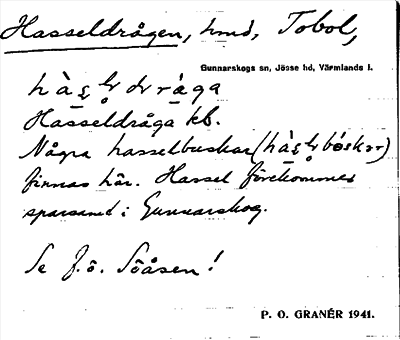 Hasseldrågen, hmd, Tobol,
Gunnarskogs sn, Jösse hd, Värmlands l.
Hasseldråga kb.
Några hasselbuskar
finnas här. Hassel förekommer
sparsamt i Gunnarskog.
Se f.ö. Söåsen!
P. O. GRANÉR 1941.